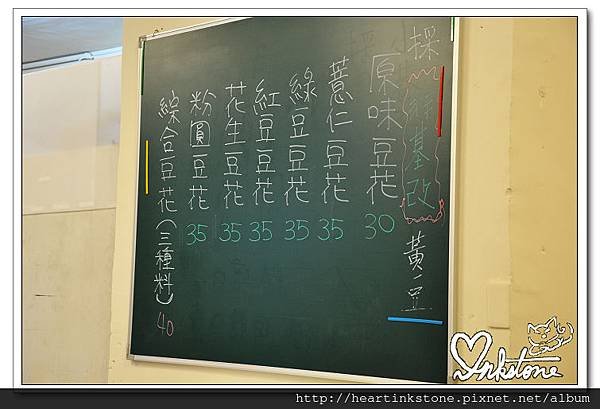 採非基改黃豆
原味豆花 30
薏仁豆花 35
綠豆豆花 35
紅豆豆花 35
花生豆花 35
粉圓豆花 35
綜合豆花(三種料) 40
Inkstone
http://heartinkstone.pixnet.net/album